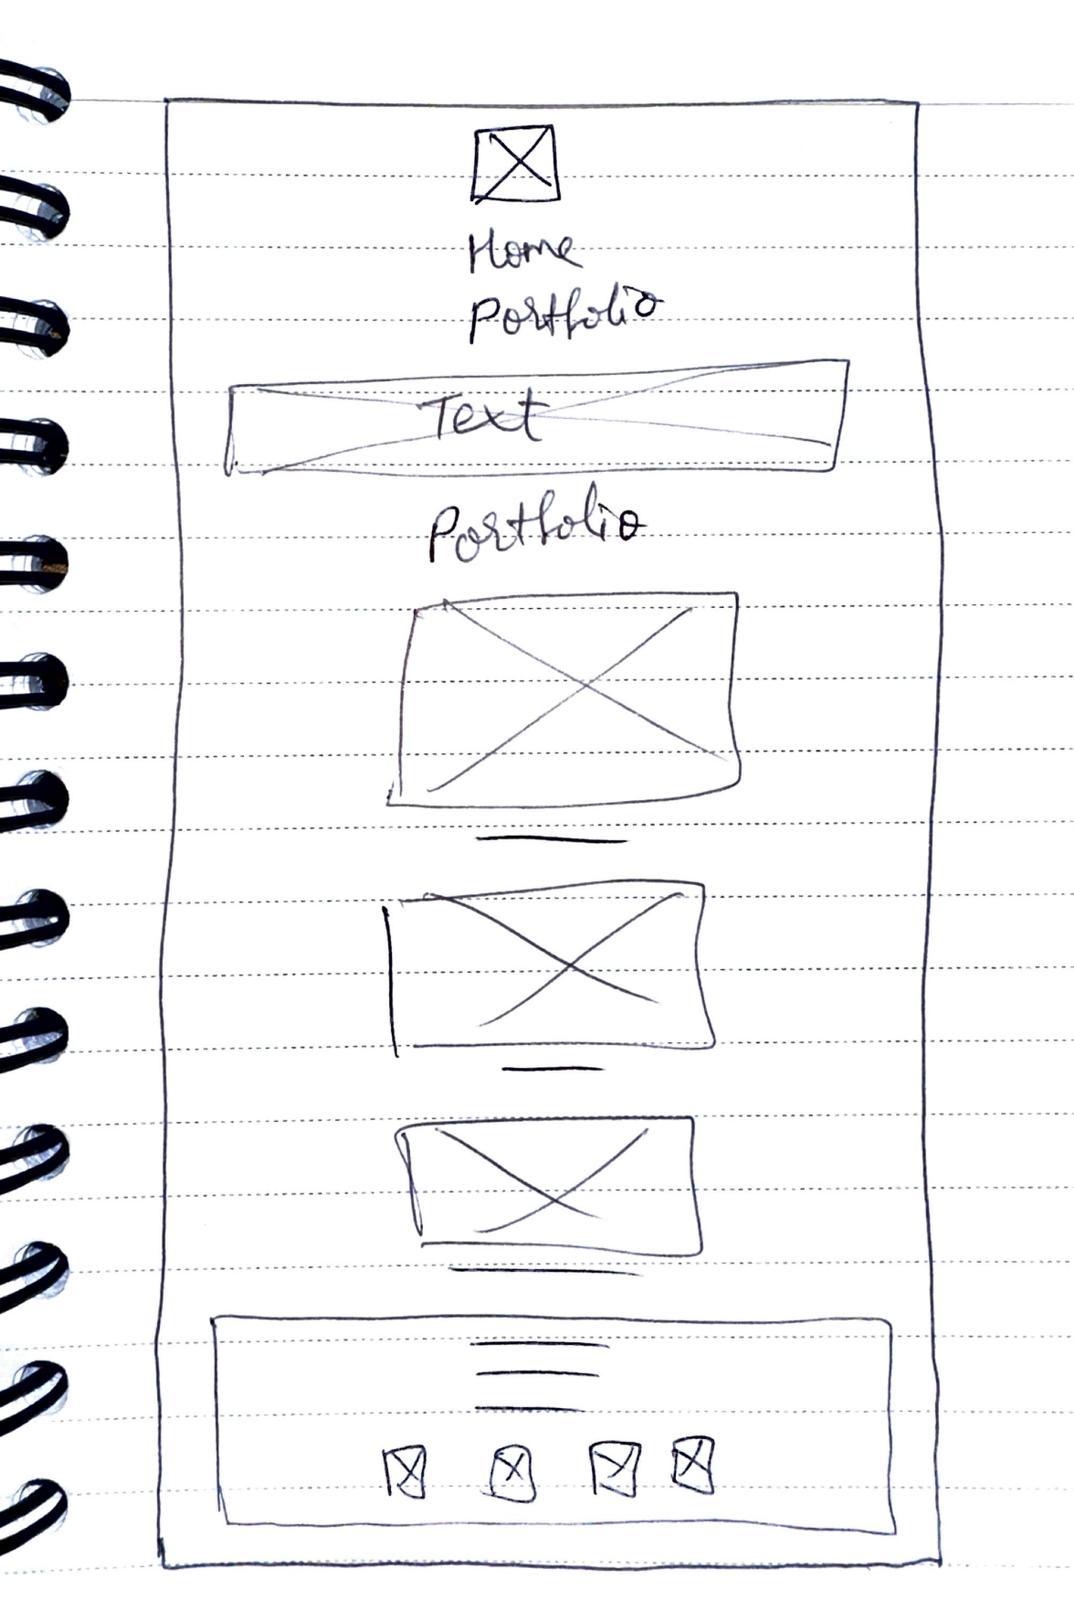 Home
Portfolio
Text
Portfolio